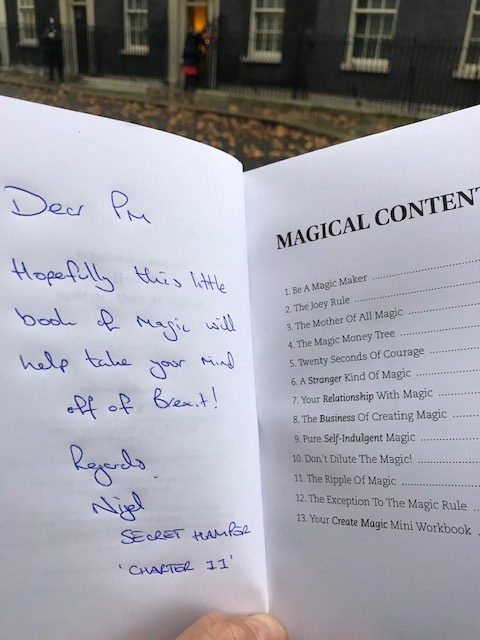 Dear PM
Hopefully this little
book of magic will
help take your mind
off of Brexit!
Regards.
Nigel
SECRET HAMPER
'CHAPTER 11'
MAGICAL CONTENT
1. Be A Magic Maker
2. The Joey Rule
3. The Mother Of All Magic
4. The Magic Money Tree
5. Twenty Seconds Of Courage
6. A Stranger Kind Of Magic
7. Your Relationship With Magic
8. The Business Of Creating Magic
9. Pure Self-Indulgent Magic
10. Don't Dilute The Magic!
11. The Ripple Of Magic
12. The Exception To The Magic Rule
13. Your Create Magic Mini Workbook